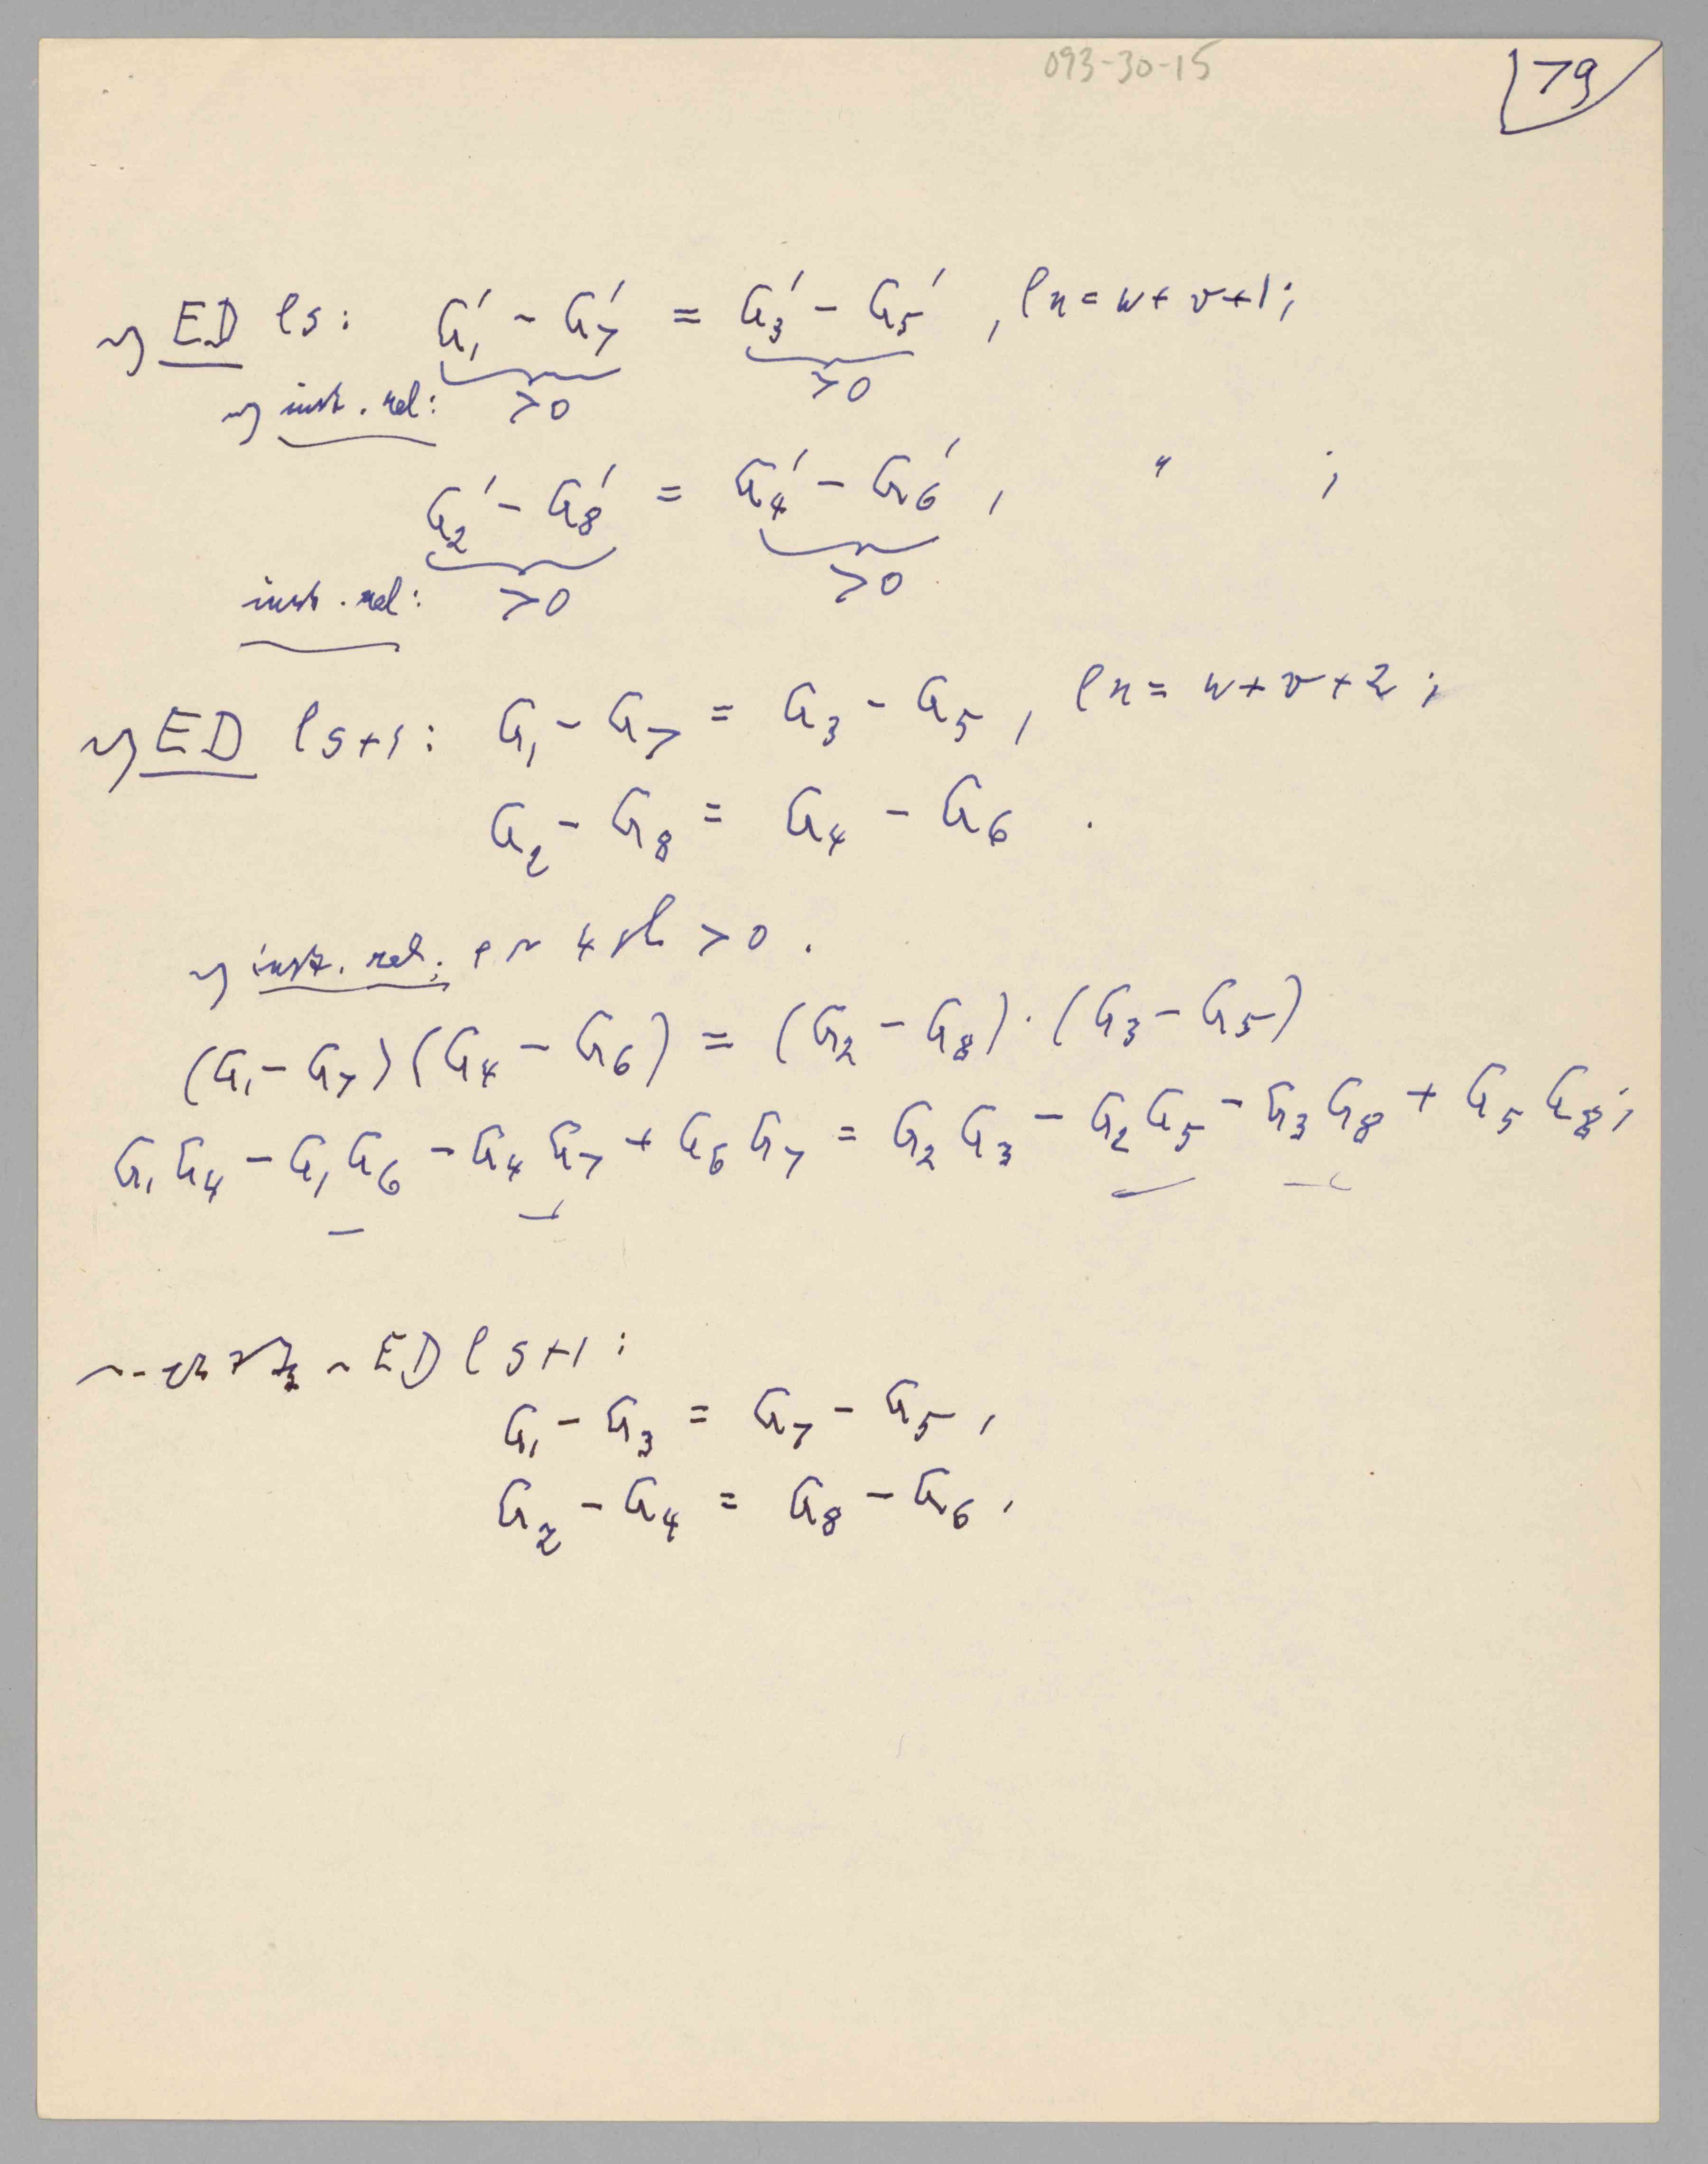 093-30-15
79
ED ls: G₁′ − G₇′ = G₃′ − G₅′ , ln = w + v + 1 ;
inst. rel: >0 >0
G₂′ − G₈′ = G₄′ − G₆′ , " ;
inst. rel: >0 >0
ED l s+1 : G₁ − G₇ = G₃ − G₅ , ln = w + v + 2 ;
G₂ − G₈ = G₄ − G₆ .
inst. rel: 4 > 0 .
(G₁ − G₇)(G₄ − G₆) = (G₂ − G₈) · (G₃ − G₅)
G₁G₄ − G₁G₆ − G₄G₇ + G₆G₇ = G₂G₃ − G₂G₅ − G₃G₈ + G₅G₈ ;
ED l s+1 :
G₁ − G₃ = G₇ − G₅ ,
G₂ − G₄ = G₈ − G₆ .